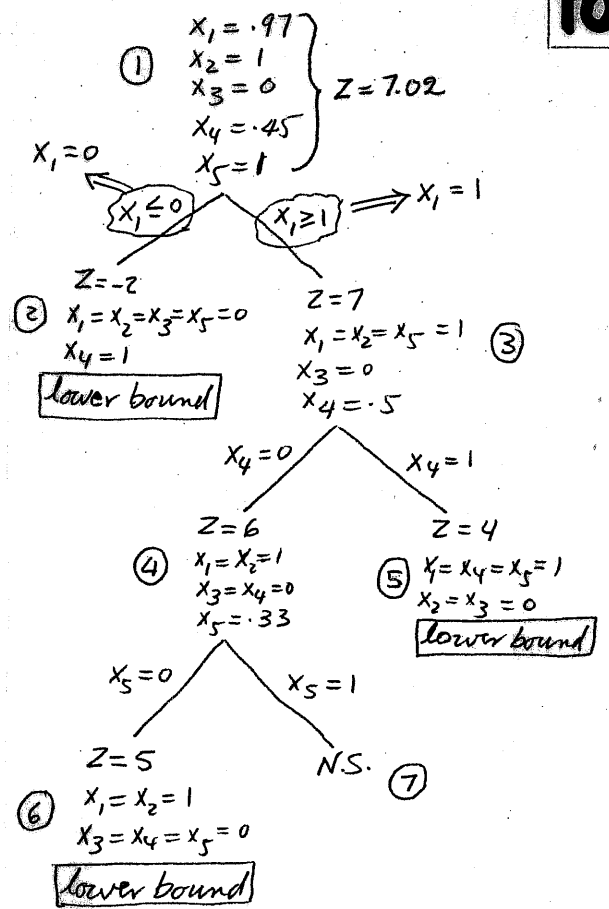 10
① X₁ = .97
X₂ = 1
X₃ = 0
X₄ = .45
X₅ = 1
Z = 7.02
X₁ = 0
X₁ ≤ 0
X₁ ≥ 1
X₁ = 1
② Z = -2
X₁ = X₂ = X₃ = X₅ = 0
X₄ = 1
lower bound
Z = 7
X₁ = X₂ = X₅ = 1 ③
X₃ = 0
X₄ = .5
X₄ = 0
X₄ = 1
Z = 6
④ X₁ = X₂ = 1
X₃ = X₄ = 0
X₅ = .33
Z = 4
⑤ X₁ = X₄ = X₅ = 1
X₂ = X₃ = 0
lower bound
X₅ = 0
X₅ = 1
Z = 5
⑥ X₁ = X₂ = 1
X₃ = X₄ = X₅ = 0
lower bound
N.S. ⑦